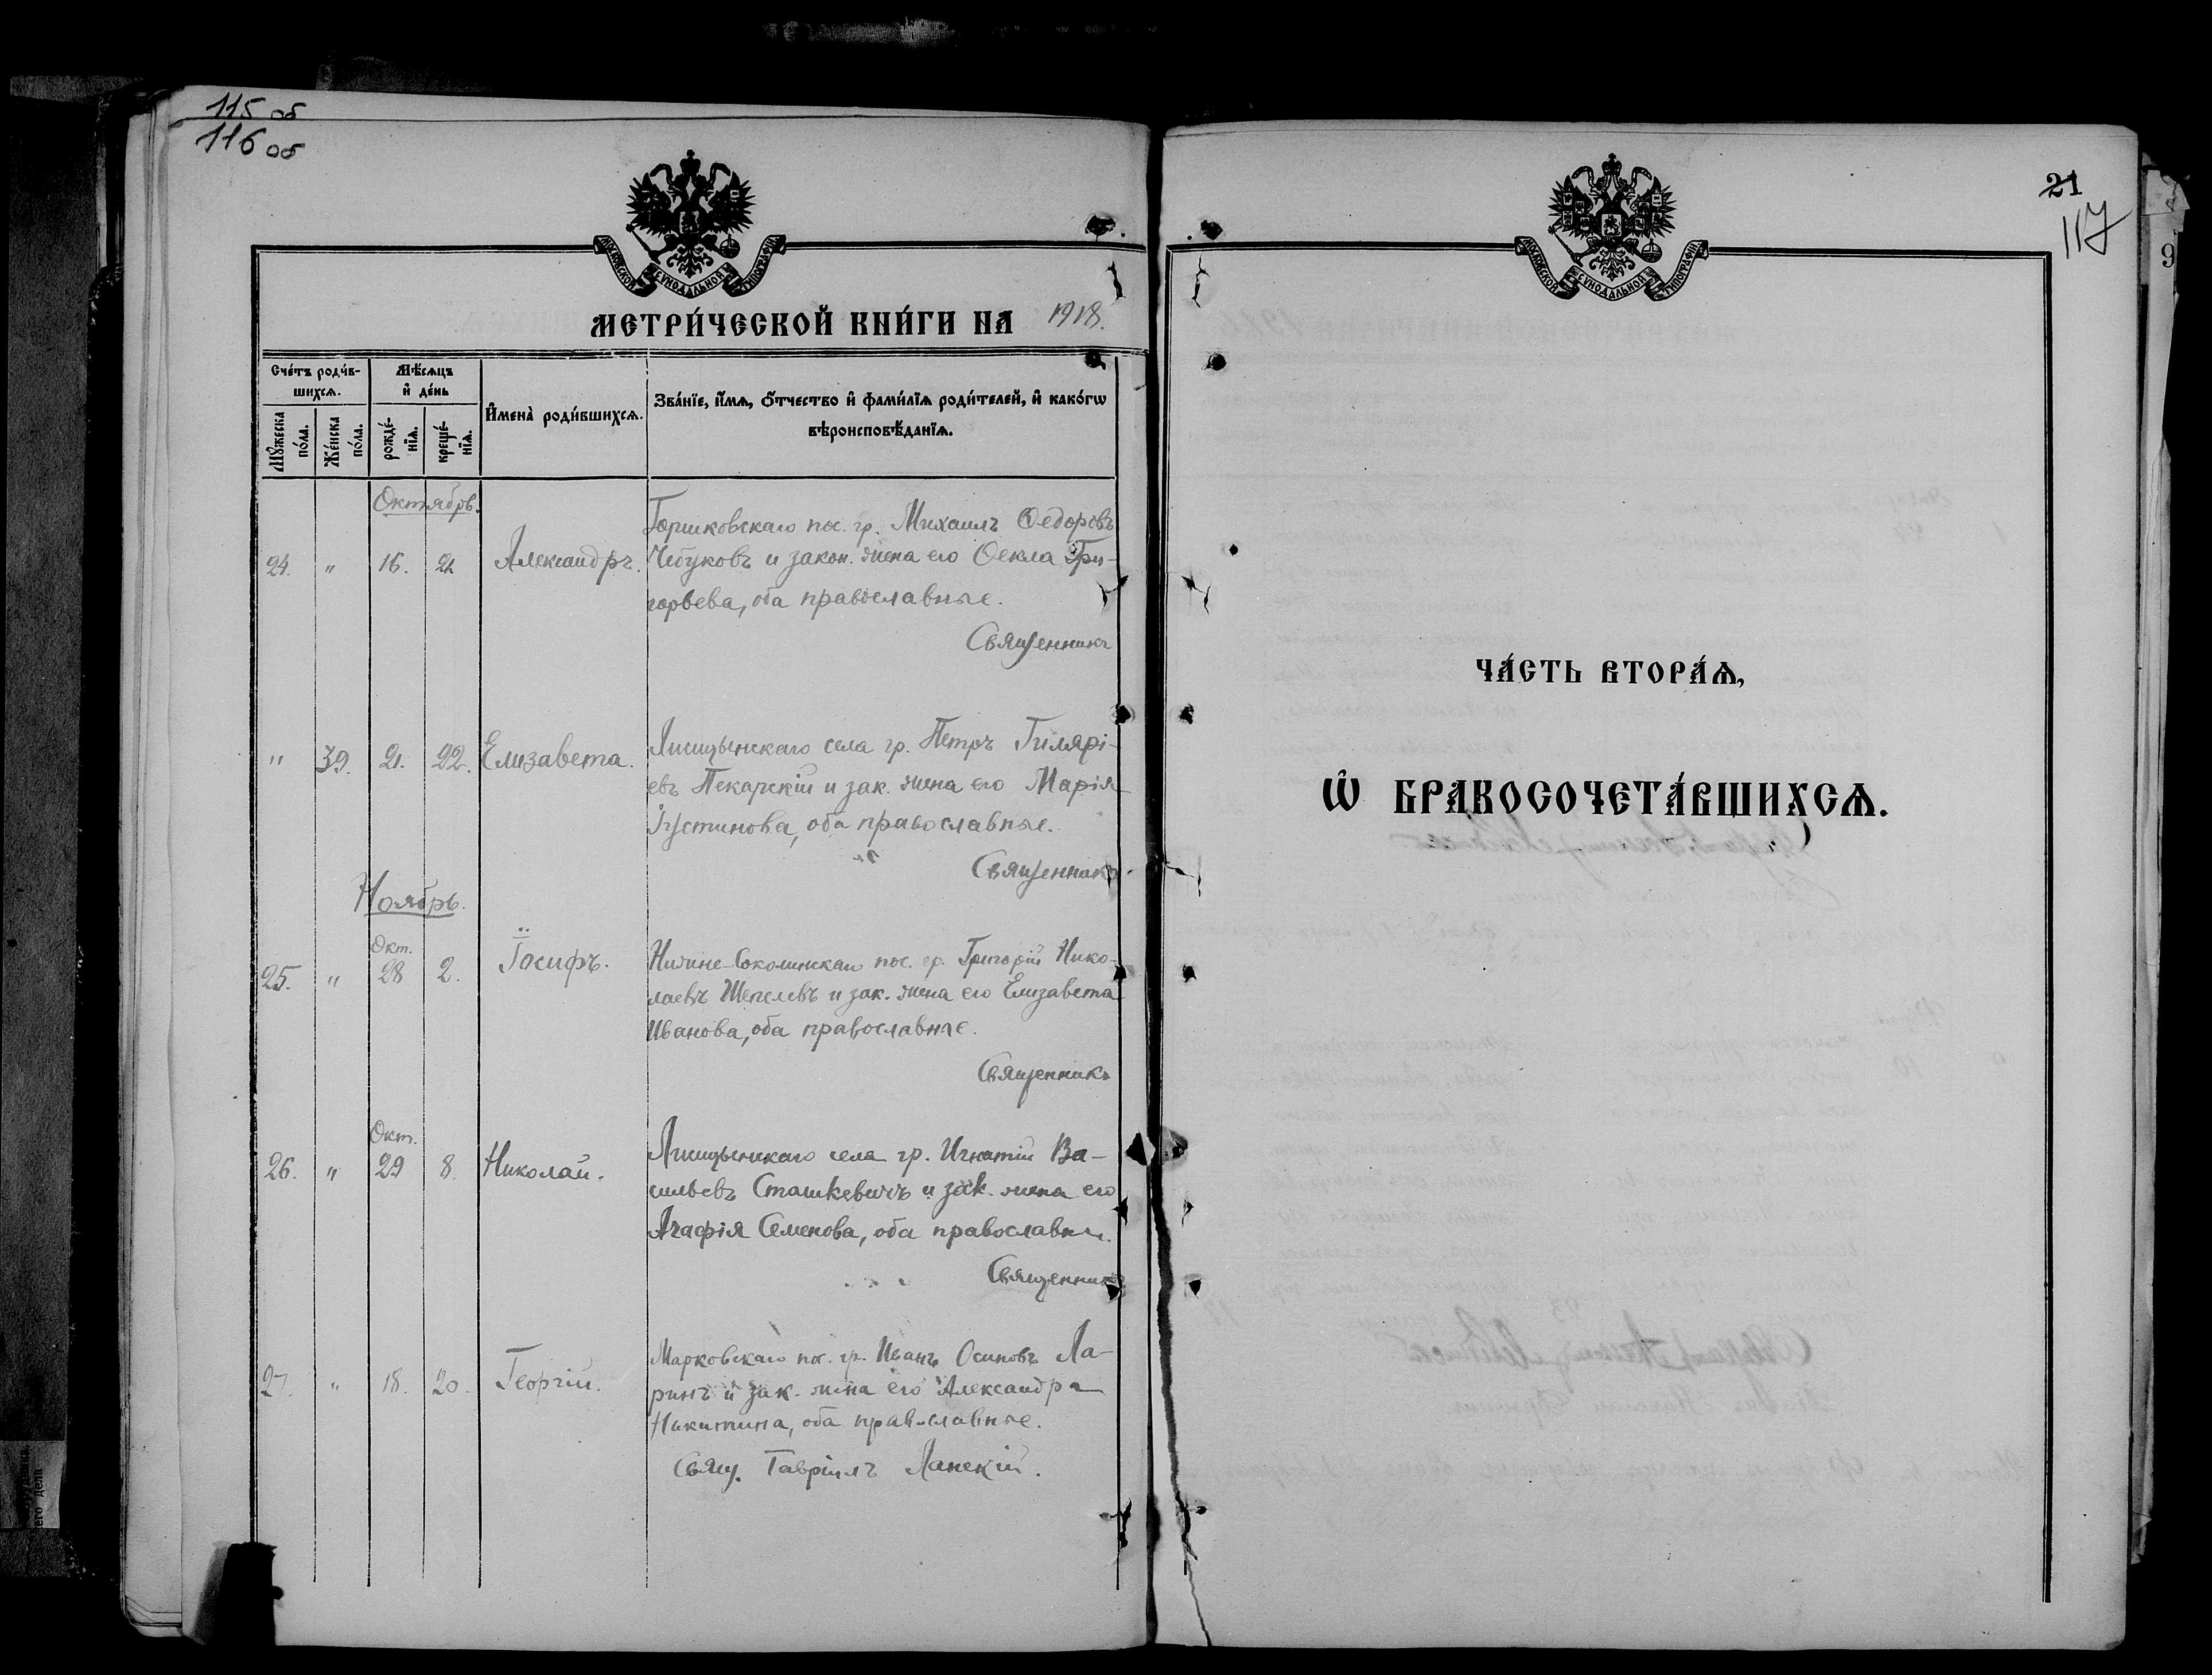 115 об
116 об
МОСКОВСКОЙ СѴНОДАЛЬНОЙ ТИПОГРАФІИ
МЕТРИ́ЧЕСКОЙ КНИ́ГИ НА 1918.
Сче́тъ роди́в-
шихсѧ.
Мꙋ́жеска
по́ла.
Же́нска
по́ла.
Мѣ́сѧцъ
и҆ де́нь
рожде́-
нїѧ.
креще́-
нїѧ.
И҆мена̀ роди́вшихсѧ.
Зва́нїе, и҆́мѧ, ѻ҆́тчество и҆ фами́лїѧ роди́телей, и҆ како́гѡ
вѣроисповѣ́данїѧ.
Октябрь.
24. " 16. 21 Александръ.
Горшковскаго пос. гр. Михаилъ Ѳедоровъ
Чебуковъ и закон. жена его Ѳекла Гри-
горьева, оба православные.
Священникъ
" 39. 21. 22. Елизавета.
Лисицынскаго села гр. Петръ Гиляріевъ
евъ Пекарскій и зак. жена его Марія
Іустинова, оба православные.
Священникъ
Ноябрь.
Окт.
25. " 28 2. Іосифъ.
Нижне-Соколинскаго пос. гр. Григорій Нико-
лаевъ Шепелевъ и зак. жена его Елизавета
Иванова, оба православные.
Священникъ
Окт.
26. " 29 8. Николай.
Лисицынскаго села гр. Игнатій Ва-
сильевъ Сташкевичъ и зак. жена его
Агафія Семенова, оба православн.
Священникъ
27. " 18. 20. Георгій.
Марковскаго пос. гр. Иванъ Осиповъ Ла-
ринъ и зак. жена его Александра
Никитина, оба православные.
Свящ. Гавріилъ Ланскій.
21
117
9
МОСКОВСКОЙ СѴНОДАЛЬНОЙ ТИПОГРАФІИ
ЧА́СТЬ ВТОРА́Ѧ,
Ѡ҆ БРАКОСОЧЕТА́ВШИХСѦ.